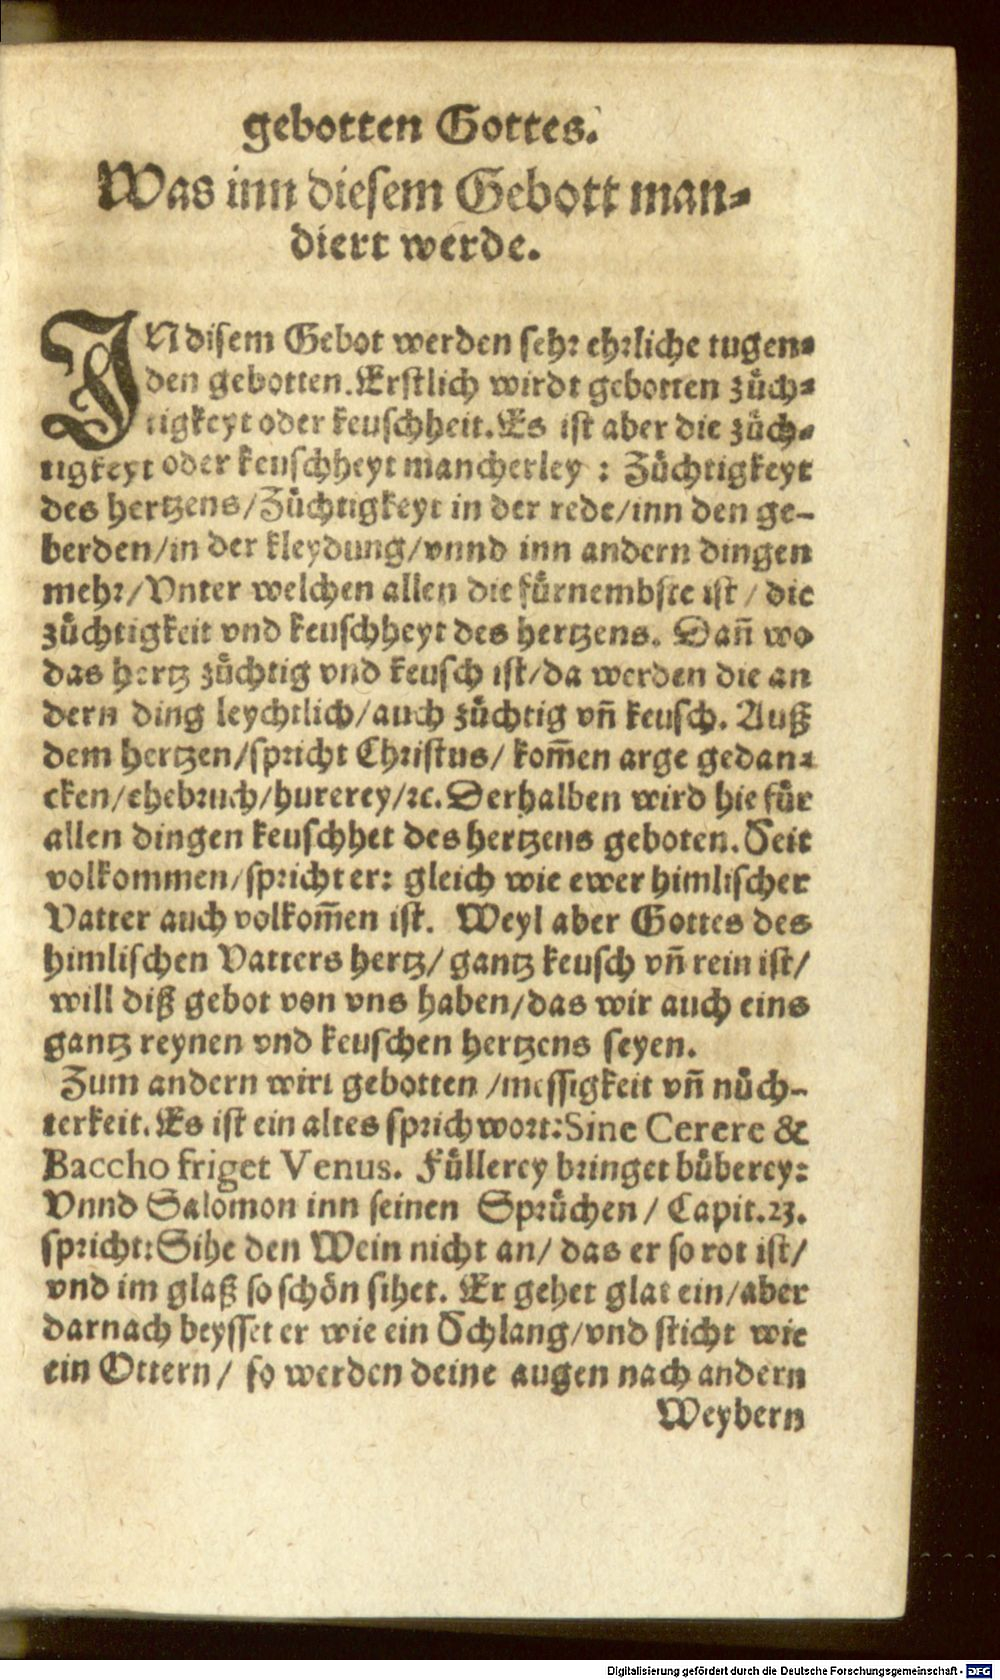 gebotten Gottes.
Was inn diesem Gebott man-
diert werde.
IN disem Gebot werden sehr ehrliche tugen-
den gebotten. Erstlich wirdt gebotten züch-
tigkeyt oder keuschheit. Es ist aber die züch-
tigkeyt oder keuschheyt mancherley : Züchtigkeyt
des hertzens/Züchtigkeyt in der rede/inn den ge-
berden/in der kleydung/vnnd inn andern dingen
mehr/Vnter welchen allen die fürnembste ist / die
züchtigkeit vnd keuschheyt des hertzens. Dañ wo
das hertz züchtig vnd keusch ist/da werden die an
dern ding leychtlich/auch züchtig vñ keusch. Auß
dem hertzen/spricht Christus/ kom̃en arge gedan-
cken/ehebruch/hurerey/ꝛc. Derhalben wird hie für
allen dingen keuschhet des hertzens geboten. Seit
volkommen/spricht er: gleich wie ewer himlischer
Vatter auch volkom̃en ist. Weyl aber Gottes des
himlischen Vatters hertz/ gantz keusch vñ rein ist/
will diß gebot von vns haben/das wir auch eins
gantz reynen vnd keuschen hertzens seyen.
Zum andern wirt gebotten /messigkeit vñ nüch-
terkeit. Es ist ein altes sprichwort: Sine Cerere &
Baccho friget Venus. Füllerey bringet büberey:
Vnnd Salomon inn seinen Sprüchen / Capit. 23.
spricht: Sihe den Wein nicht an/ das er so rot ist/
vnd im glaß so schön sihet. Er gehet glat ein/aber
darnach beysset er wie ein Schlang/vnd sticht wie
ein Ottern/ so werden deine augen nach andern
Weybern
Digitalisierung gefördert durch die Deutsche Forschungsgemeinschaft - DFG